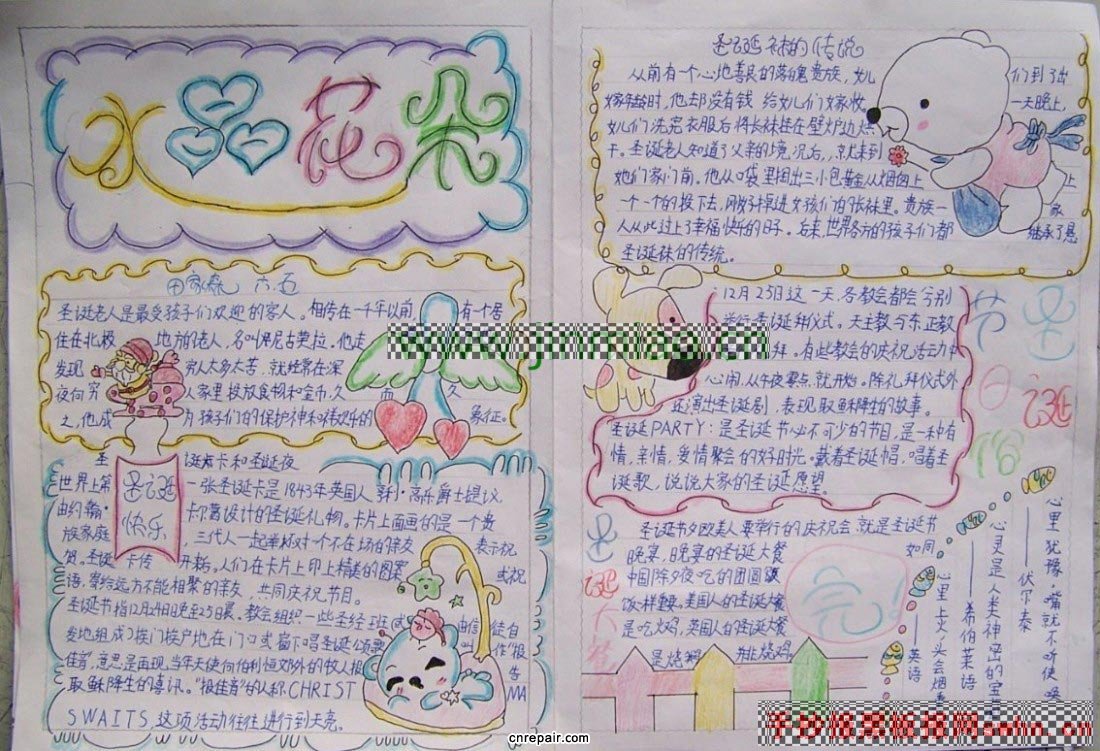 水晶花朵
六五
圣诞老人是最受孩子们欢迎的客人。相传在一千年以前,有一个居
住在北极 地方的老人,名叫尼古莱拉。他走
发现 穷人大多太苦,就经常在深
夜向穷 人家里投放食物和金币,久而久
之,他成 为孩子们的保护神和 欢乐的 象征。
圣诞快乐
圣 诞贺卡和圣诞夜
世界上第 一张圣诞卡是1843年英国人 爵士提议,
由约翰· 设计的圣诞礼物。卡片上面画的是一个贵
族家庭 三代人一起举杯对一个不在场的亲友 表示祝
贺。圣诞 卡传 开 。人们在卡片上印上精美的图案 或祝
语,寄给远方不能相聚的亲友,共同庆祝节日。
圣诞节指12月24日晚至25日晨。教会组织一些圣经班 或由信徒自
发地组成 挨门挨户地在门口或窗下唱圣诞颂歌 叫作"报
佳音",意思是再现当年天使向伯利恒郊外的牧人报告
取稣降生的喜讯。"报佳音"的人称CHRIST MA
SWAITS,这项活动往往进行到天亮。
圣诞袜的传说
从前有一个心地善良的落魄贵族,女儿们到了出
嫁年龄时,他却没有钱 给女儿们嫁妆。一天晚上,
女儿们洗完衣服后将长袜挂在壁炉边烘
干。圣诞老人知道了父亲的境况后,就来到
她们家门前。他从口袋里掏出三小包黄金从烟囱上
一个一个的投下去,刚好掉进女孩们的长袜里。贵族一家
人从此过上了幸福快乐的日子。后来,世界各方的孩子们都继承了悬
圣诞袜的传统。
圣诞节 习俗
12月25日这一天,各教会都会分别
举行圣诞拜仪式。天主教与东正教
拜。有些教会的庆祝活动中
心闹,从午夜零点就开始。除礼拜仪式外
还演出圣诞剧,表现取稣降生的故事。
圣诞PARTY:是圣诞节必不可少的节目,是一种有
情,亲情,爱情聚会的好时光。戴着圣诞帽,唱着圣
诞歌,说说大家的圣诞愿望。
圣诞大餐
圣诞节夕欧美人要举行的庆祝会就是圣诞节
晚宴,晚宴的圣诞大餐 如同
中国除夕夜吃的团圆饭
饭一样重要。美国人的圣诞大餐
是吃火鸡,英国人的圣诞大餐
是烧鹅 非烧鸡
完!
心里犹豫,嘴就不听使唤
——伏尔泰
心灵是人类神密的宝
——希伯莱语
心里上火,头会烟
——英语
www.jnmiao.cn
手抄报黑板报网
cnrepair.com